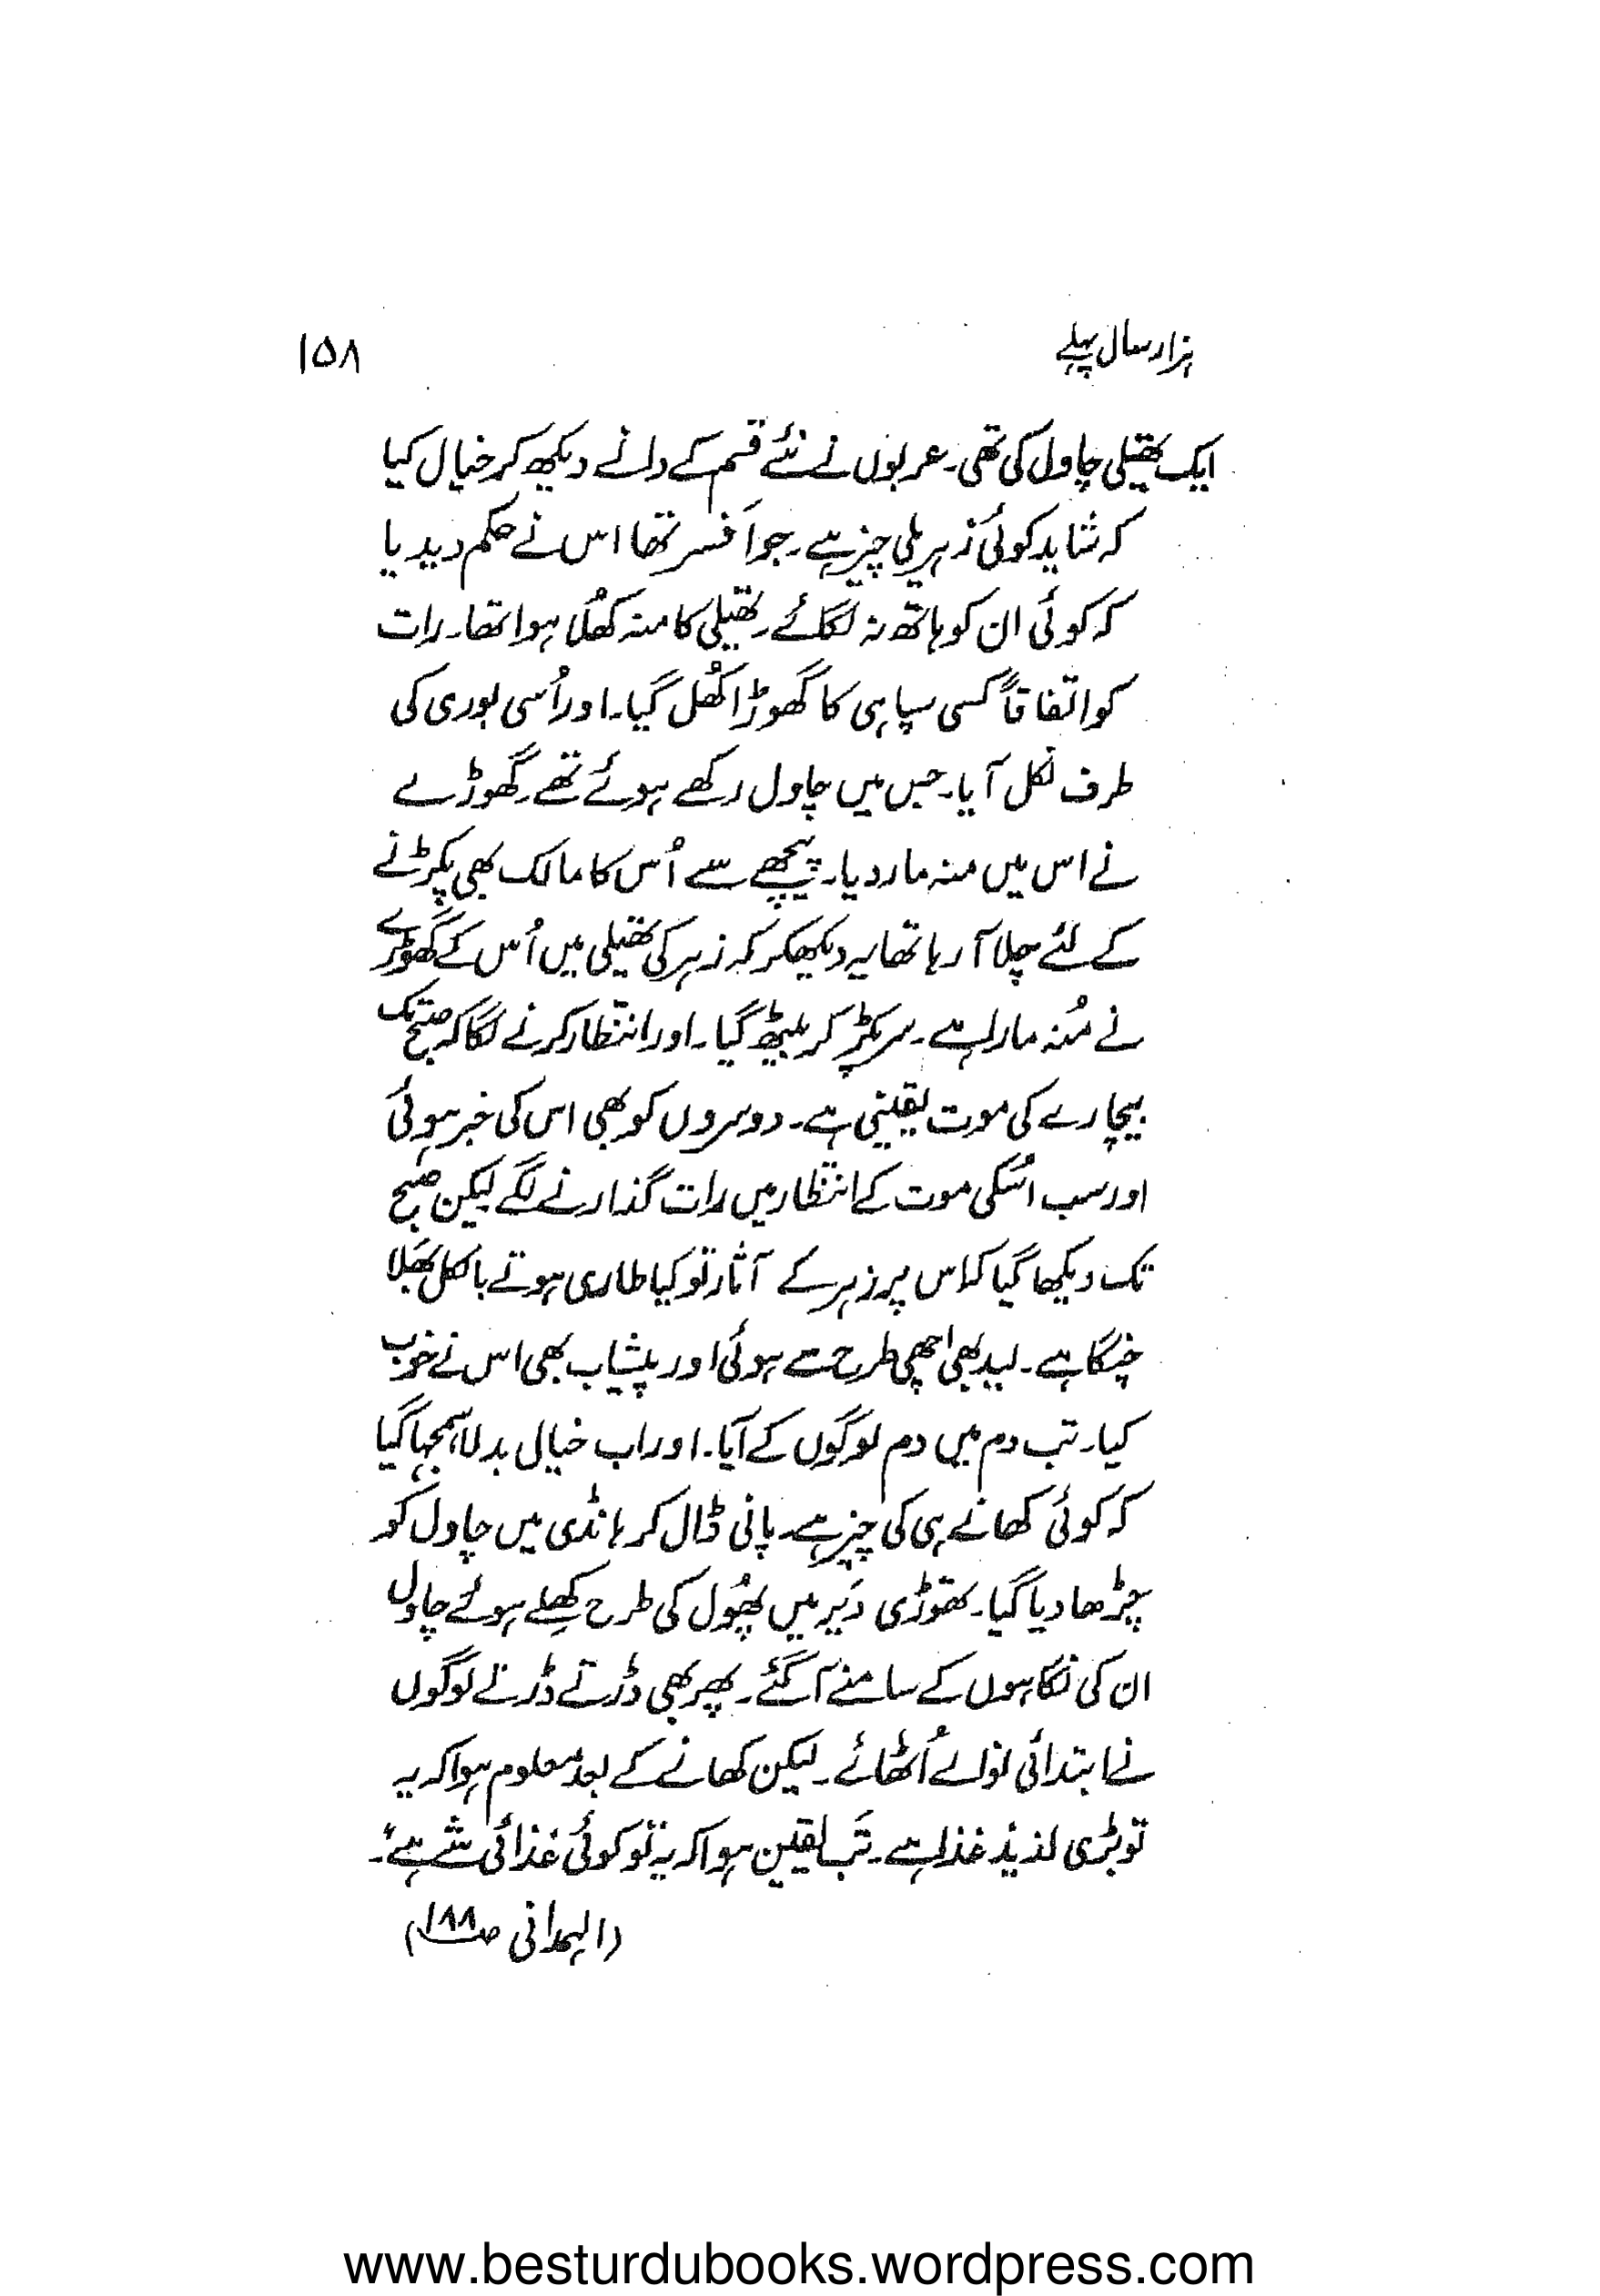 ہزار سال پہلے
۱۵۸
ایک تھیلی چاول کی تھی۔ عربوں نے نئے قسم کے دانے دیکھ کر خیال کیا
کہ شاید کوئی زہریلی چیز ہے۔ جو اَفسر تھا اس نے حکم دیدیا
کہ کوئی ان کو ہاتھ نہ لگائے۔ تھیلی کا منہ کھُلا ہوا تھا۔ رات
کو اتفاقاً کسی سپاہی کا گھوڑا کھُل گیا۔ اور اُسی بوری کی
طرف نکل آیا۔ جس میں چاول رکھے ہوئے تھے۔ گھوڑے
نے اس میں منہ مار دیا۔ پیچھے سے اُس کا مالک بھی پکڑنے
کے لئے چلا آ رہا تھا یہ دیکھکر کہ زہر کی تھیلی میں اُس کے گھوڑے
نے مُنہ مارا ہے۔ سر پکڑ کر بیٹھ گیا۔ اور انتظار کرنے لگا کہ صبح تک
بیچارے کی موت یقینی ہے۔ دوسروں کو بھی اس کی خبر ہوئی
اور سب اُسکی موت کے انتظار میں رات گذارنے لگے لیکن صبح
تک دیکھا گیا کہ اس پر زہر کے آثار تو کیا طاری ہوتے بالکل بھَلا
چنگا ہے۔ لید بھی اچھی طرح سے ہوئی اور پیشاب بھی اس نے خوب
کیا۔ تب دم میں دم لوگوں کے آیا۔ اور اب خیال بدلا، سمجھا گیا
کہ کوئی کھانے ہی کی چیز ہے۔ پانی ڈال کر ہانڈی میں چاول کو
چڑھا دیا گیا۔ تھوڑی دَیر میں پھُول کی طرح کھِلے ہوئے چاول
ان کی نگاہوں کے سامنے آ گئے۔ پھر بھی ڈرتے ڈرتے لوگوں
نے ابتدائی نوالے اُٹھائے۔ لیکن کھانے کے بعد معلوم ہوا کہ یہ
تو بڑی لذیذ غذا ہے۔ تَب یقین ہوا کہ یہ تو کوئی غذائی شے ہے۔
(الہمدانی صـ۱۸۸)
www.besturdubooks.wordpress.com